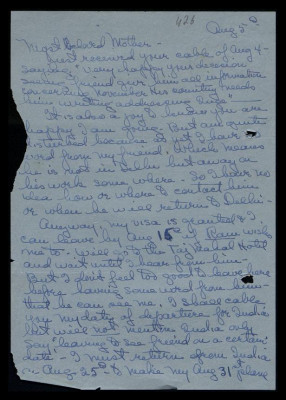 426
Aug 5th
Most Beloved Mother -
Just received your cable of Aug 4 -
saying "Very happy your decision
friend give him all information
concerning November His country needs
him writing addressing Swiss"
It is also a joy to know you are
happy I am going. But am quite
disturbed because as yet I have no
word from my friend. Which means
he is not in Delhi but away on
his work some where. So I have no
idea how or where to contact him
or when he will return to Delhi -
Anyway, my visa is granted & I
can leave by Aug 16th if Ram wills
me to. Will go to the Taj Mahal Hotel
and wait until I hear from him -
But I don't feel too good to leave here
before having some word from him
that he can see me. I shall cable
you my date of departure for India
but will not mention India only
say "leaving to see friend on a certain
date" - I must return from India
on Aug. 25th to make my Aug 31st